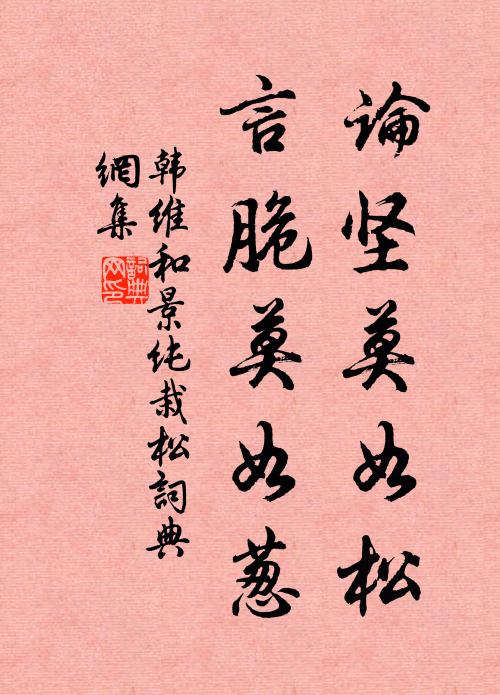 論坚莫如松
言脆莫如葱
韩维和景纯栽松詞典
網集
詞典
网印